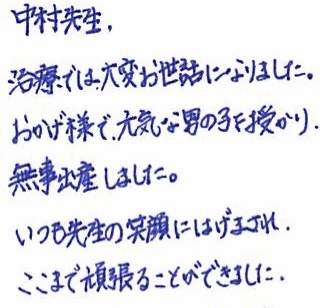 中村先生,
治療では、大変お世話になりました。
おかげ様で、元気な男の子を授かり、
無事出産しました。
いつも先生の笑顔にはげまされ、
ここまで頑張ることができました。